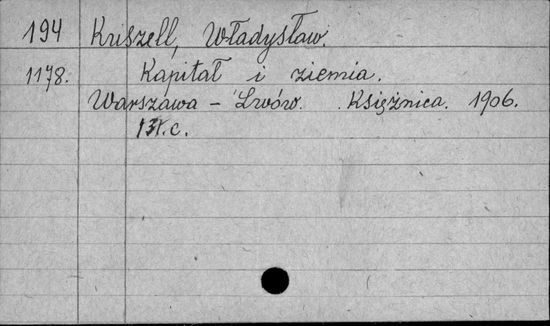 194 Kriszell, Władysław.
1178. Kapitał i ziemia.
Warszawa - Lwów. Księżnica. 1906.